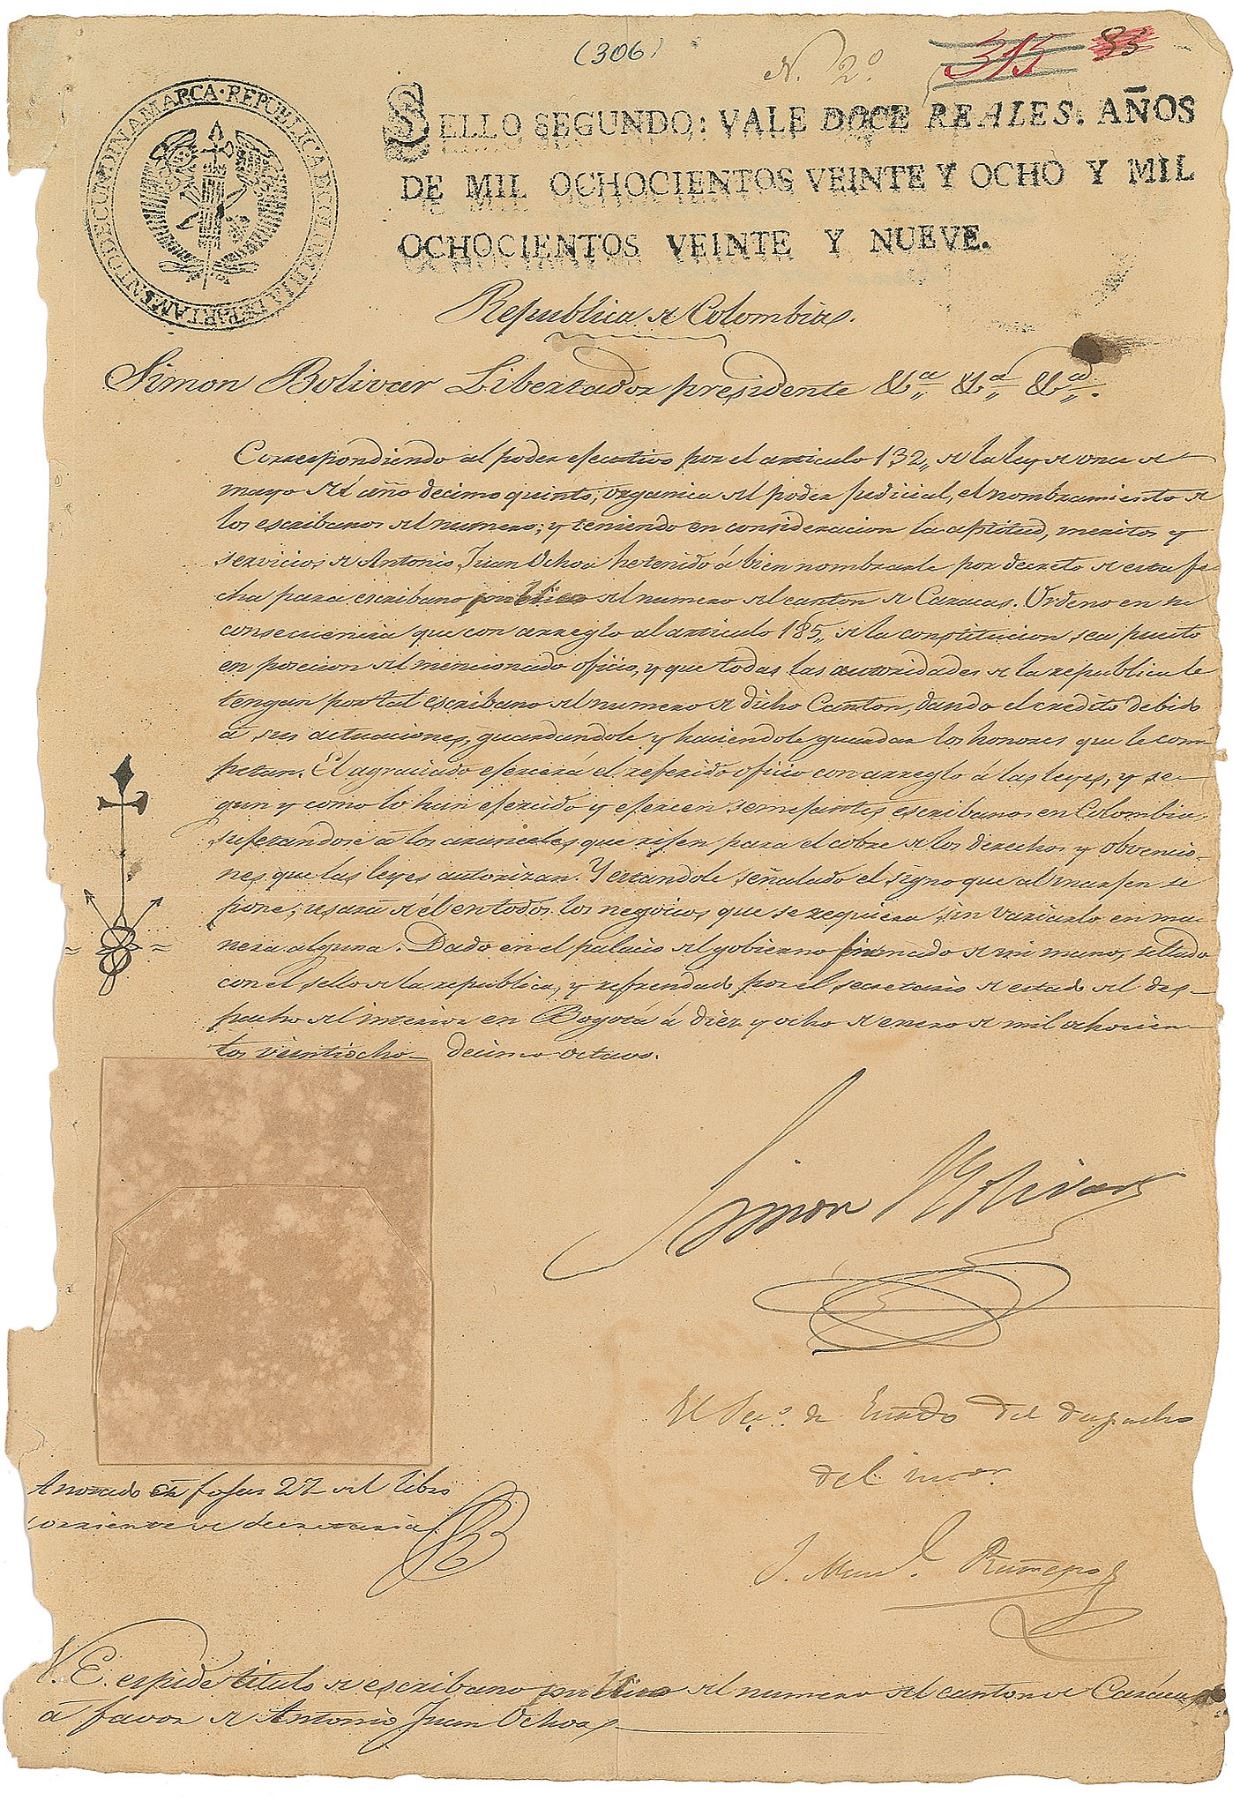 (306)
N. 2º
315 85
REPUBLICA DE COLOMBIA DEPARTAMENTO DE CUNDINAMARCA
SELLO SEGUNDO: VALE DOCE REALES: AÑOS
DE MIL OCHOCIENTOS VEINTE Y OCHO Y MIL
OCHOCIENTOS VEINTE Y NUEVE.
Republica de Colombia.
Simon Bolivar Libertador presidente &ª &ª &ª.
Correspondiendo al poder ejecutivo por el articulo 132,, de la ley de once de
mayo del año decimo quinto, organica del poder judicial, el nombramiento de
los escribanos del numero; y teniendo en consideracion la aptitud, meritos y
servicios de Antonio Juan Ochoa he tenido á bien nombrarle por decreto de esta fe-
cha para escribano publico del numero del canton de Caracas. Ordeno en su
consecuencia que con arreglo al articulo 185,, de la constitucion sea puesto
en posecion del mencionado oficio, y que todas las autoridades de la republica le
tengan por tal escribano del numero de dicho Canton, dando el credito debido
á sus actuaciones, guardandole y haciendole guardar los honores que le com-
petan. El agraciado ejercerá el referido oficio con arreglo á las leyes, y se-
gun y como lo han ejercido y ejercen semejantes escribanos en Colombia,
sujetandose á los aranceles que rijen para el cobro de los derechos y obvencio-
nes que las leyes autorizan. Y estandole señalado el signo que al marjen se
pone; usará de él en todos los negocios que se requiera sin variarlo en ma-
nera alguna. Dado en el palacio del gobierno firmado de mi mano, sellado
con el sello de la republica, y refrendado por el secretario de estado del des-
pacho del interior en Bogotá á diez y ocho de enero de mil ochocien-
tos veintiocho— decimo octavo.
Simon Bolivar
El Secº. de Estado del despacho
del interior
J. Manl. Restrepo
Anotado en fojas 27 del libro
corriente de secretaria
V. E. espide titulo de escribano publico del numero del canton de Carácas
á favor de Antonio Juan Ochoa